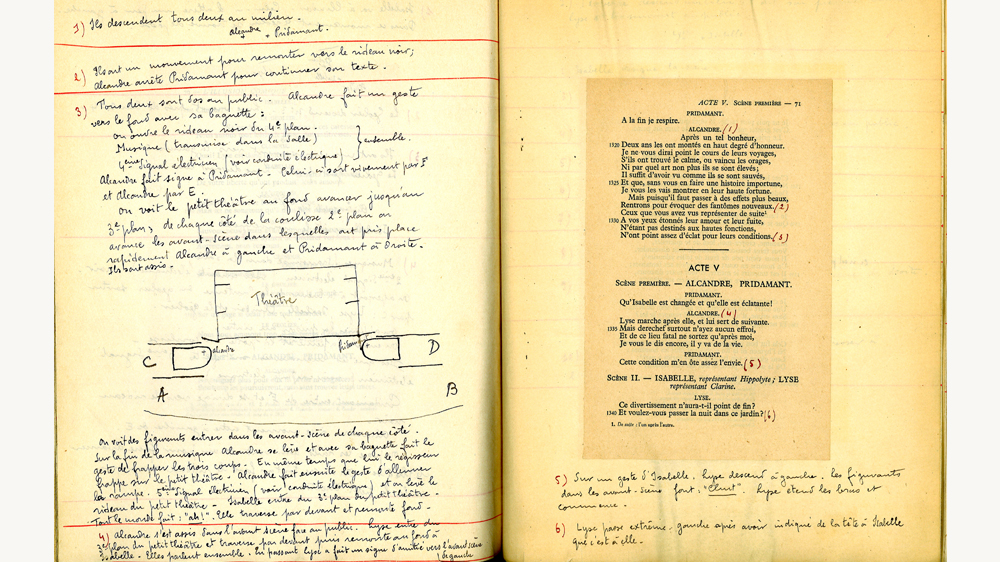 1) Ils descendent tous deux au milieu.
Alcandre + Pridamant.
2) Ils ont un mouvement pour remonter vers le rideau noir;
Alcandre arrête Pridamant pour continuer son texte.
3) Tous deux sont dos au public. Alcandre fait un geste
vers le fond avec sa baguette :
on ouvre le rideau noir du 4e plan.
Musique (transmise dans la salle)
4ème signal électricien (voir conduite électrique)
ensemble.
Alcandre fait signe à Pridamant. Celui-ci sort vivement par F
et Alcandre par E.
On voit le petit théâtre au fond avancer jusqu'au
3e plan, de chaque côté de la coulisse 2e plan on
avance les avant-scène dans lesquelles ont pris place
rapidement Alcandre à gauche et Pridamant à Droite.
Ils sont assis.
Théâtre
C
+ Alcandre
Pridamant +
D
A
B
On voit des figurants entrer dans les avant-scène de chaque côté.
Sur la fin de la musique Alcandre se lève et avec sa baguette fait le
geste de frapper les trois coups. En même temps que lui le régisseur
frappe sur le petit théâtre. Alcandre fait ensuite le geste d'allumer
la rampe. 5ème Signal électricien (voir conduite électrique) et on lève le
rideau du petit théâtre. Isabelle entre du 3e plan du petit théâtre.
Tout le monde fait : "ah!". Elle traverse par devant et remonte fond.
4) Alcandre s'est assis dans l'avant scène face au public. Lyse entre du
3e plan du petit théâtre et traverse par devant puis remonte au fond à
Isabelle. Elles parlent ensemble. En passant Lyse a fait un signe d'amitié vers l'avant scène
de gauche
ACTE V. SCÈNE PREMIÈRE — 71
PRIDAMANT.
A la fin je respire.
ALCANDRE. (1)
Après un tel bonheur,
1320 Deux ans les ont montés en haut degré d'honneur.
Je ne vous dirai point le cours de leurs voyages,
S'ils ont trouvé le calme, ou vaincu les orages,
Ni par quel art non plus ils se sont élevés;
Il suffit d'avoir vu comme ils se sont sauvés,
1325 Et que, sans vous en faire une histoire importune,
Je vous les vais montrer en leur haute fortune.
Mais puisqu'il faut passer à des effets plus beaux,
Rentrons pour évoquer des fantômes nouveaux. (2)
Ceux que vous avez vus représenter de suite¹
1330 A vos yeux étonnés leur amour et leur fuite,
N'étant pas destinés aux hautes fonctions,
N'ont point assez d'éclat pour leurs conditions. (3)
ACTE V
SCÈNE PREMIÈRE. — ALCANDRE, PRIDAMANT.
PRIDAMANT.
Qu'Isabelle est changée et qu'elle est éclatante!
ALCANDRE. (4)
Lyse marche après elle, et lui sert de suivante.
1335 Mais derechef surtout n'ayez aucun effroi,
Et de ce lieu fatal ne sortez qu'après moi,
Je vous le dis encore, il y va de la vie.
PRIDAMANT.
Cette condition m'en ôte assez l'envie. (5)
SCÈNE II. — ISABELLE, représentant Hippolyte; LYSE
représentant Clarine.
LYSE.
Ce divertissement n'aura-t-il point de fin?
1340 Et voulez-vous passer la nuit dans ce jardin? (6)
1. De suite : l'un après l'autre.
5) Sur un geste d'Isabelle, Lyse descend à gauche. Les figurants
dans les avant-scène font : "Chut". Lyse étend les bras et
commence.
6) Lyse passe extrême-gauche après avoir indiqué de la tête à Isabelle
que c'est à elle.